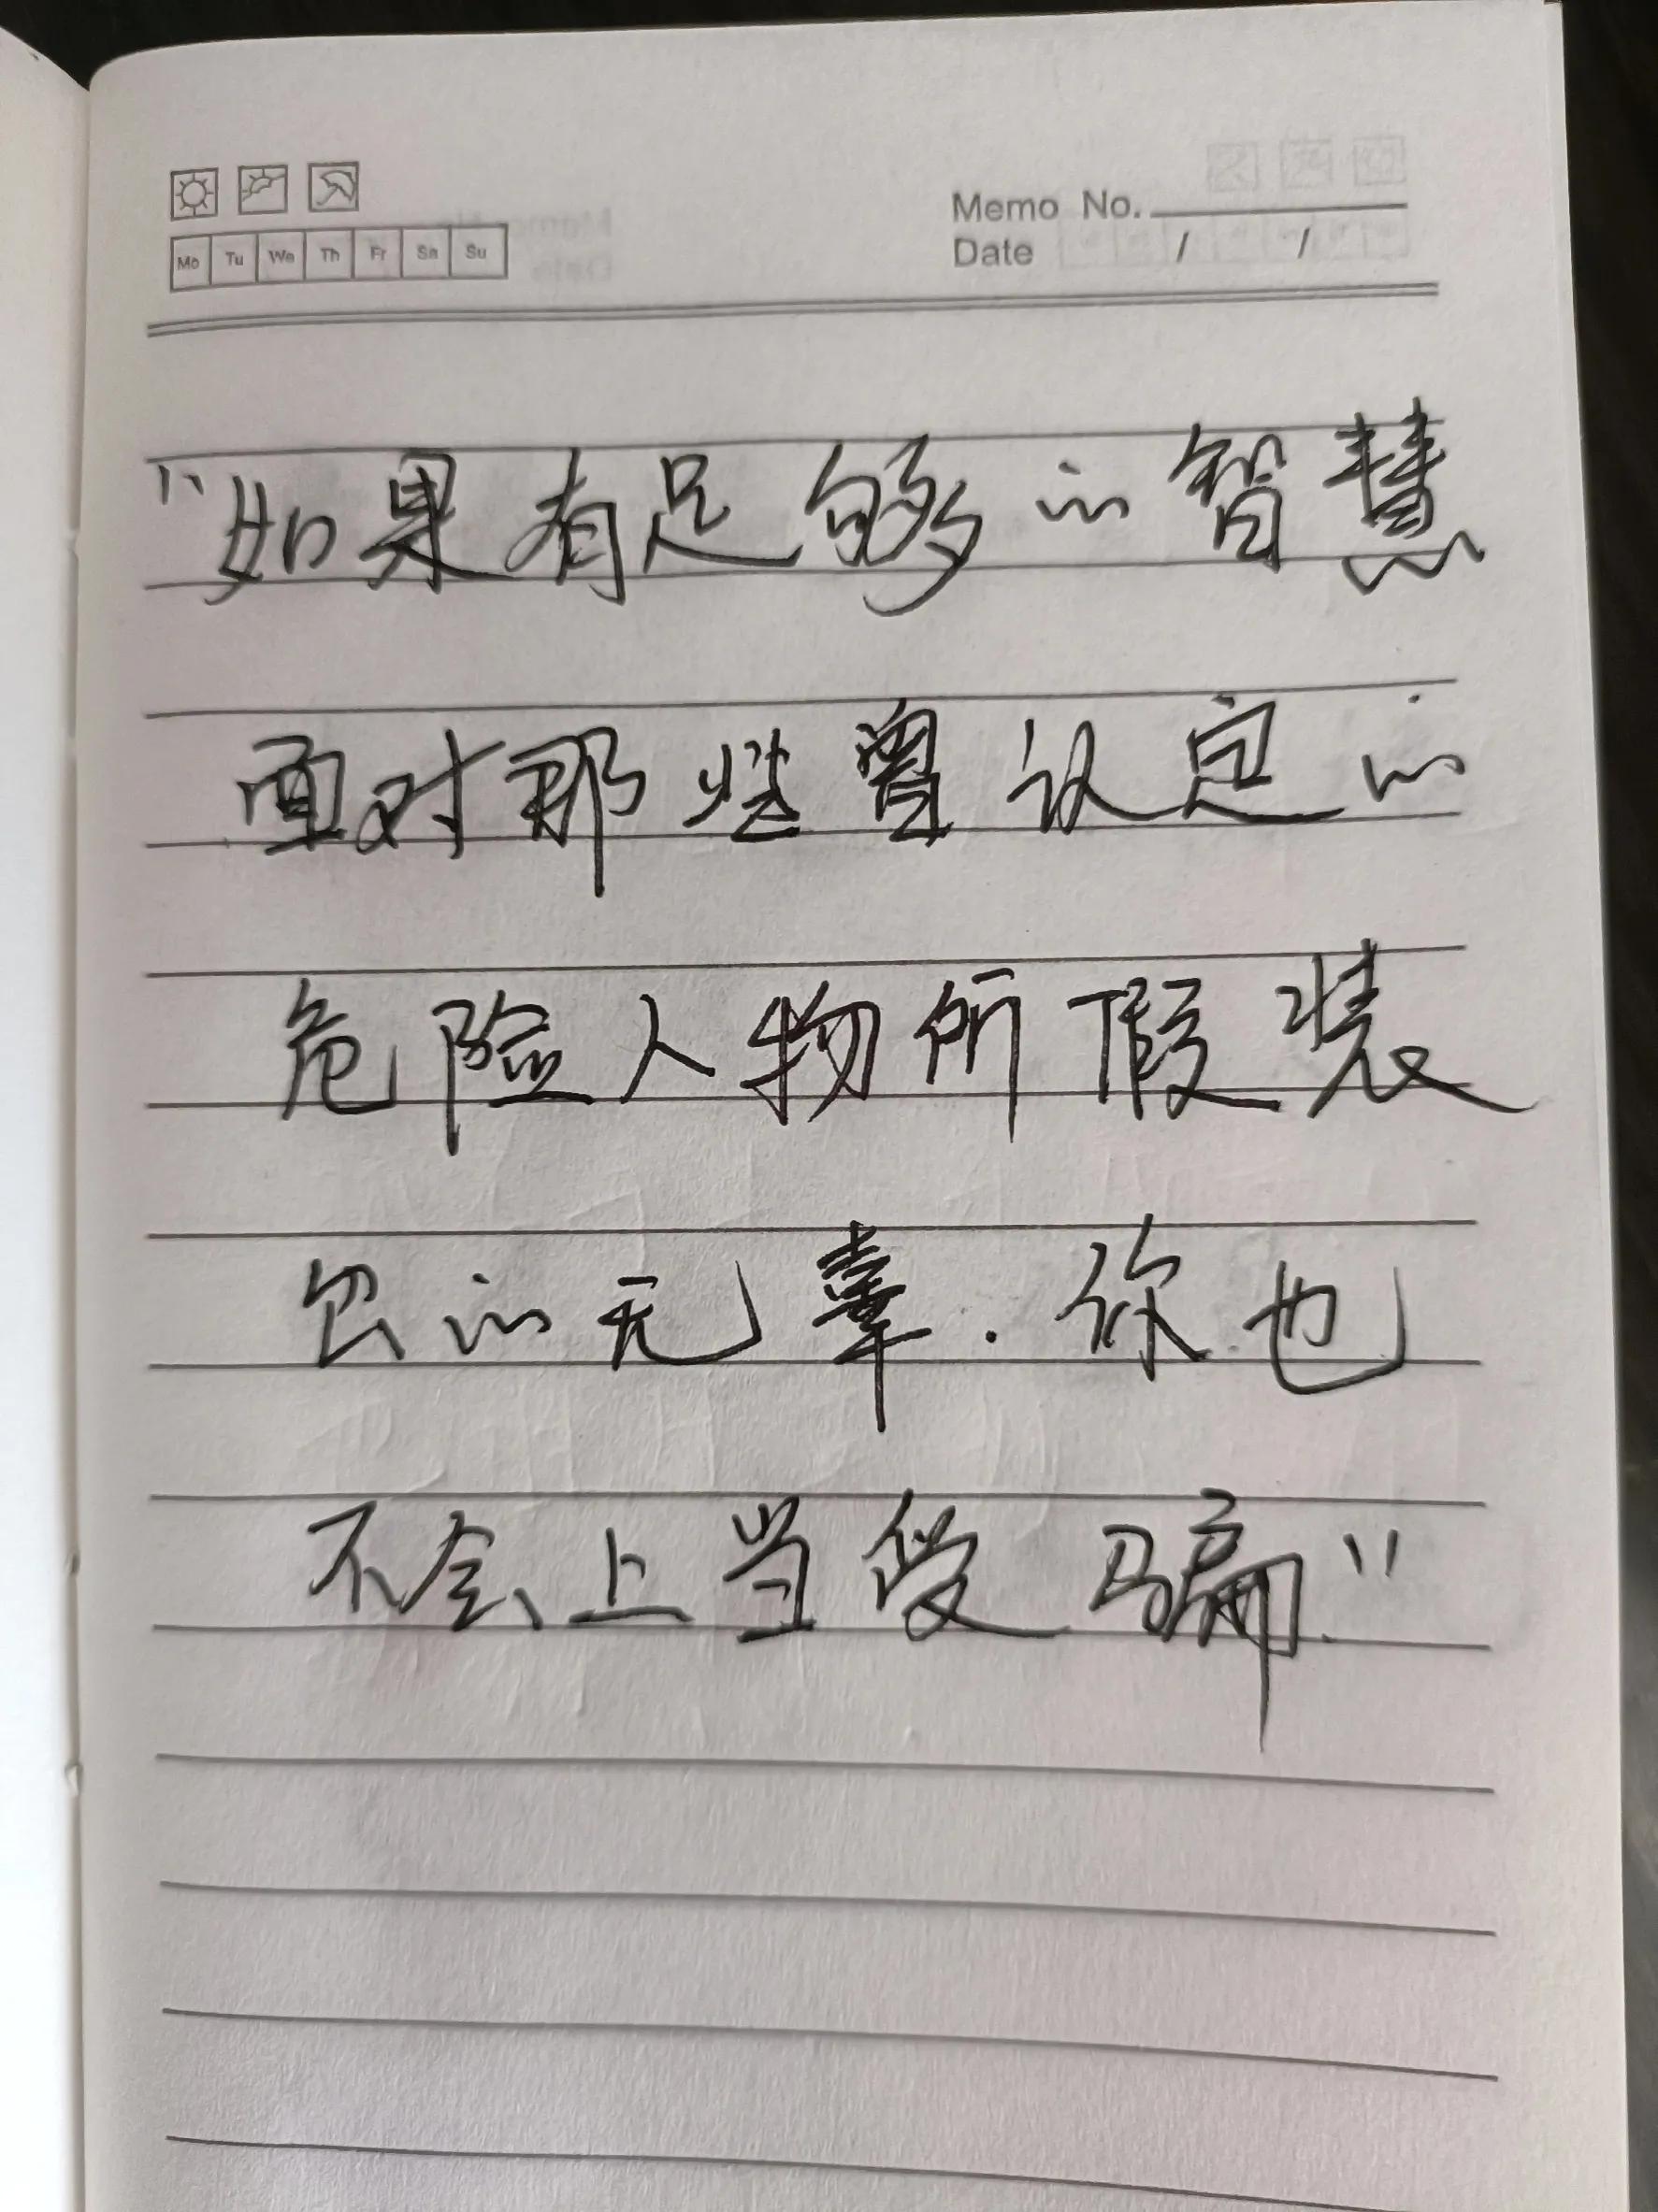 Memo No.
Mo Tu We Th Fr Sa Su
Date / /
"如果有足够的智慧
面对那些曾认定的
危险人物所假装
出的无辜.你也
不会上当受骗"